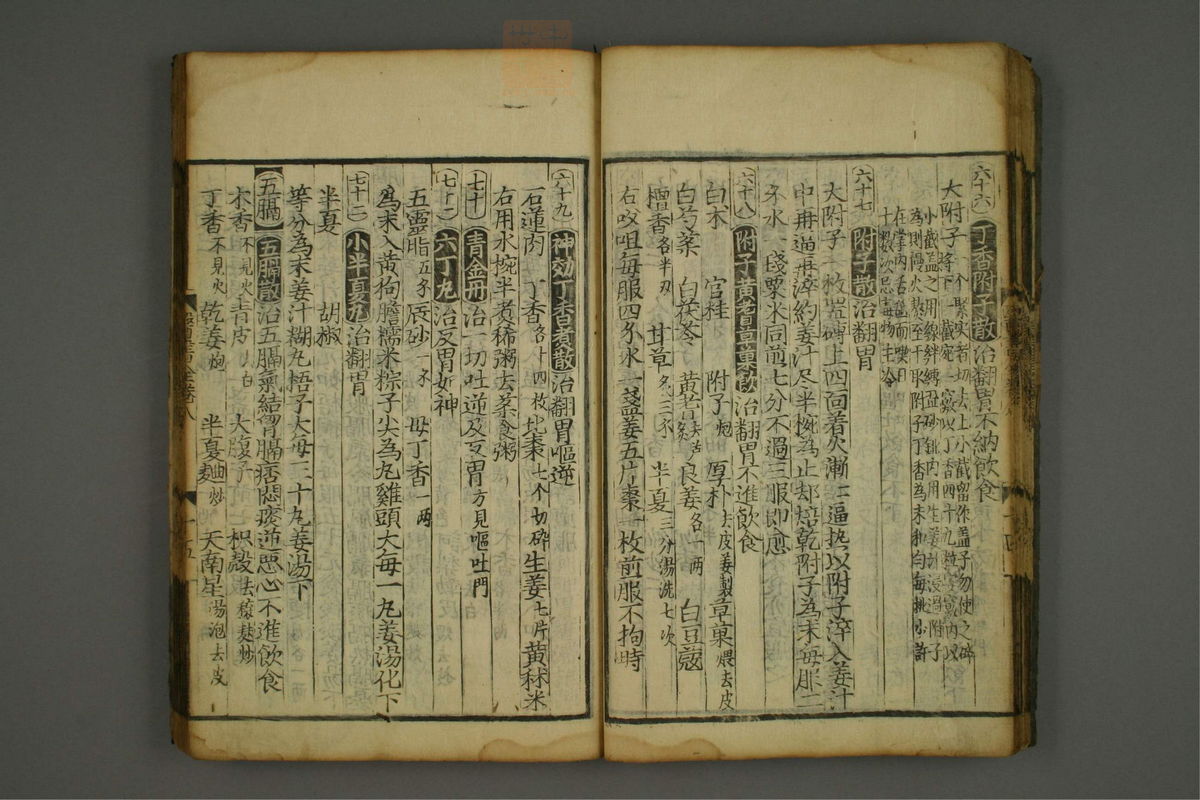 六十六 丁香附子散 治翻胃不納飲食
大附子一个緊實者切去上小截留作盖子勿使之碎
將下一截宛一竅以丁香四十九粒安竅内以
小截盖之用線絆縛置砂銚内用生姜汁浸過附子
為則慢火熬至干取附子丁香為末和匀每挑少許
在掌内舌舐而喫日
十數次忌毒物生冷
六十七 附子散 治翻胃
大附子一枚置磚上四面着火漸二逼热以附子淬入姜汁
中再逼再淬約姜汁尽半椀為止却焙乾附子為末每服二
錢水一盞粟米同煎七分不過三服即愈
六十八 附子黄耆草菓飲 治翻胃不進飲食
白术 官桂 附子炮 厚朴去皮姜製 草菓煨去皮
白芍藥 白茯苓 黄耆去芦炙 良姜各一兩 白豆蔻
檀香各半刄 甘草炙三分 半夏三分湯洗七次
右㕮咀每服四分水一盞姜五片棗一枚煎服不拘時
六十九 神効丁香煮散 治翻胃嘔逆
石蓮肉 丁香各十四枚 北棗七个切碎 生姜七片 黄秫米
右用水椀半煮稀粥去藥食粥
七十 青金丹 治一切吐逆及反胃方見嘔吐門
七十一 六丁丸 治反胃如神
五靈脂五分 辰砂一分 母丁香一兩
為末入黄狗膽糯米粽子尖為丸雞頭大每一丸姜湯化下
七十二 小半夏丸 治翻胃
半夏 胡椒
等分為末姜汁糊丸梧子大每二三十丸姜湯下
五膈 五膈散 治五膈氣結胷膈痞悶痰逆惡心不進飲食
木香不見火 青皮去白 大腹子 枳殼去穰麸炒
丁香不見火 乾姜炮 半夏麯炒 天南星湯泡去皮